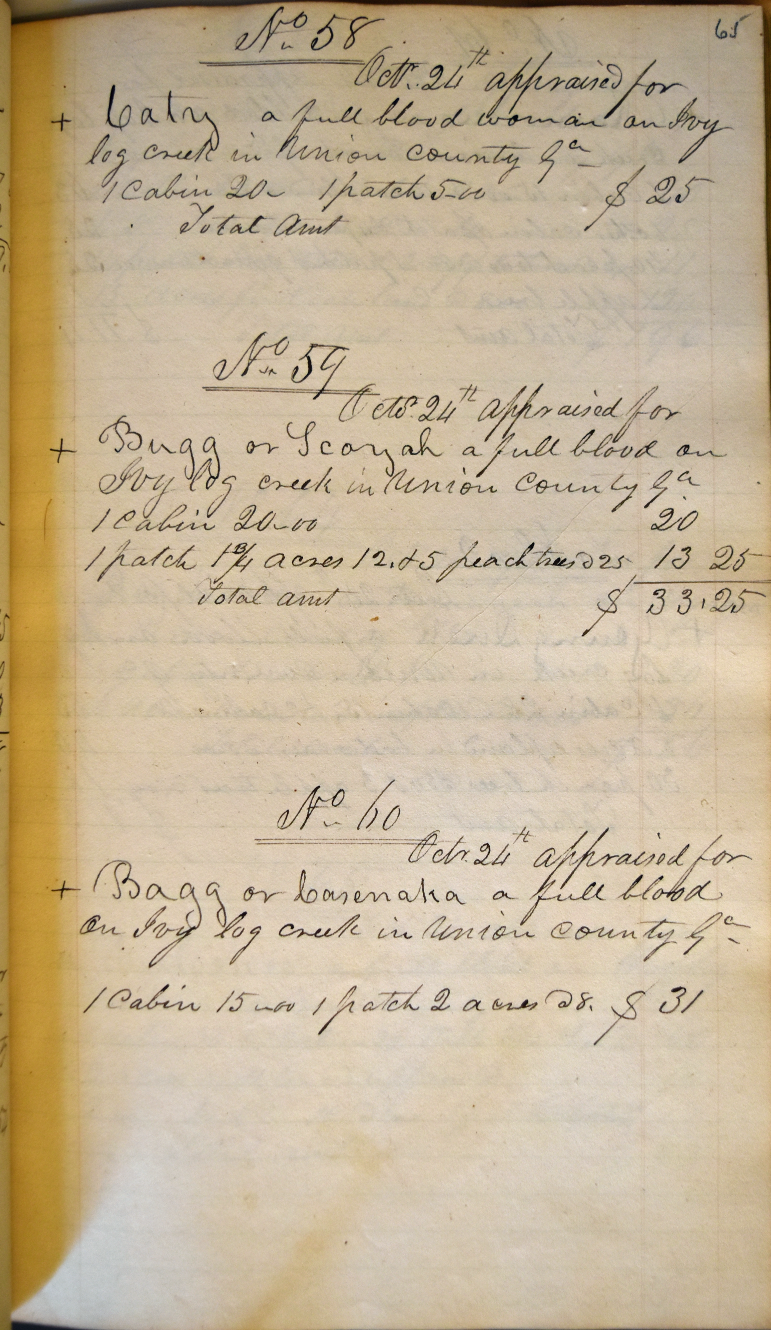 65
No 58
Octr. 24th appraised for
+ Catry a full blood woman on Ivy
log creek in Union county Ga
1 Cabin 20- 1 patch 5-00 $ 25
Total Amt
No 59
Octr 24th appraised for
+ Bugg or Scoryah a full blood on
Ivy log creek in Union County Ga
1 Cabin 20-00 20
1 patch 1 3/4 acres 12. & 5 peach trees @ 25 13 25
Total amt $ 33.25
No 60
Octr. 24th appraised for
+ Bagg or Casenaka a full blood
on Ivy log creek in Union county Ga
1 Cabin 15-00 1 patch 2 acres @ 8. $ 31